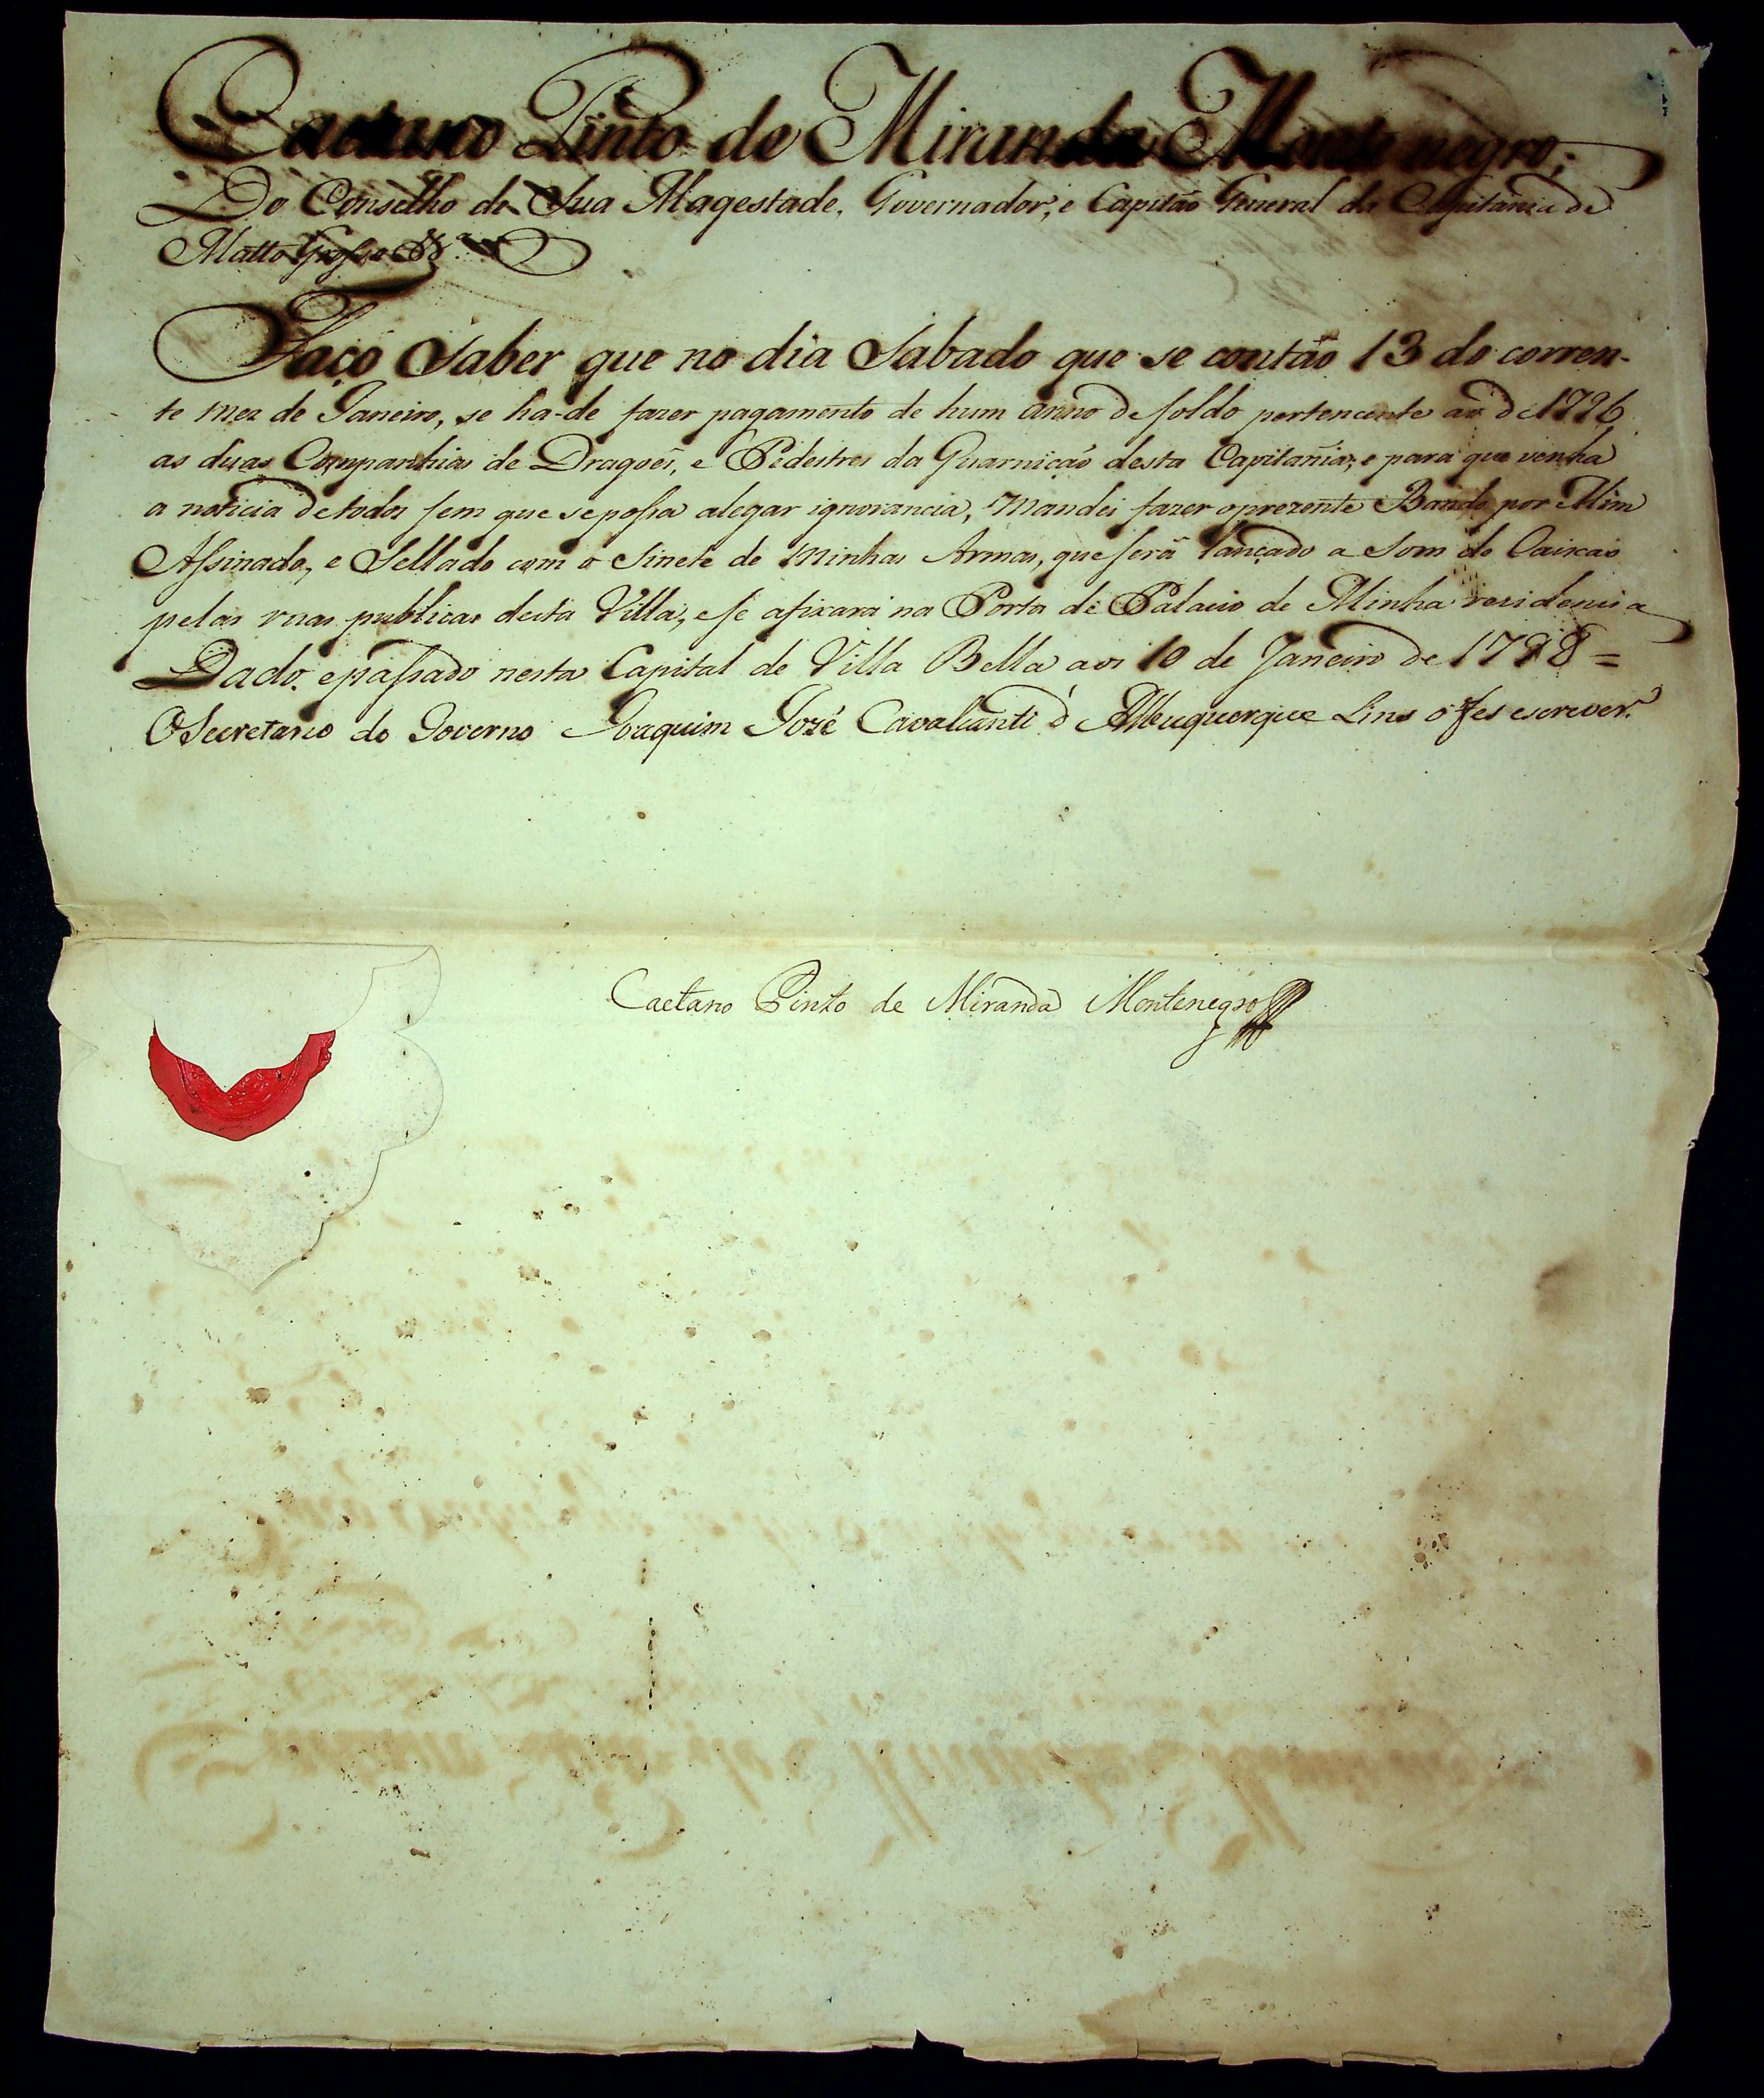 Caetano Pinto de Miranda Montenegro;
Do Conselho de Sua Magestade, Governador, e Capitão General da Capitania de
Matto Grosso &.ª
Faço Saber que no dia Sabado que se contão 13 do corren-
te mez de Janeiro, se ha-de fazer pagamento de hum anno de soldo pertencente ao de 1796
as duas Companhias de Dragoẽs, e Pedestres da Guarnição desta Capitania; e para que venha
a noticia de todos sem que se possa alegar ignorancia, Mandei fazer o prezente Bando por Mim
Assinado, e Sellado com o Sinete de Minhas Armas, que será lançado a Som de Caixas
pelas ruas publicas desta Villa, e se afixará na Porta de Palacio de Minha rezidencia
Dado, e passado nesta Capital de Villa Bella aos 10 de Janeiro de 1798 =
O Secretario do Governo Joaquim Jozé Cavalcanti d' Albuquerque Lins o fes escrever.
Caetano Pinto de Miranda Montenegro